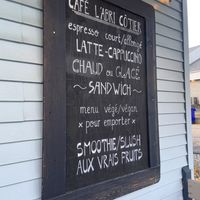 CAFÉ L'ABRI CÔTIER
espresso court/allongé
LATTE-CAPPUCCINO
CHAUD OU GLACÉ
~ SANDWICH ~
menu végé/végan
x pour emporter x
SMOOTHIE/SLUSH
AUX VRAIS FRUITS